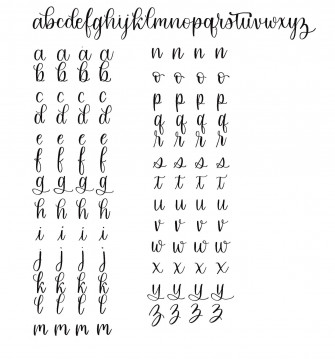 abcdefghijklmnopqrstuvwxyz
a a a a
b b b b
c c c c
d d d d
e e e e
f f f f
g g g g
h h h h
i i i i
j j j j
k k k k
l l l l
m m m m
n n n n
o o o o
p p p p
q q q q
r r r r
s s s s
t t t t
u u u u
v v v v
w w w w
x x x x
y y y y
z z z z